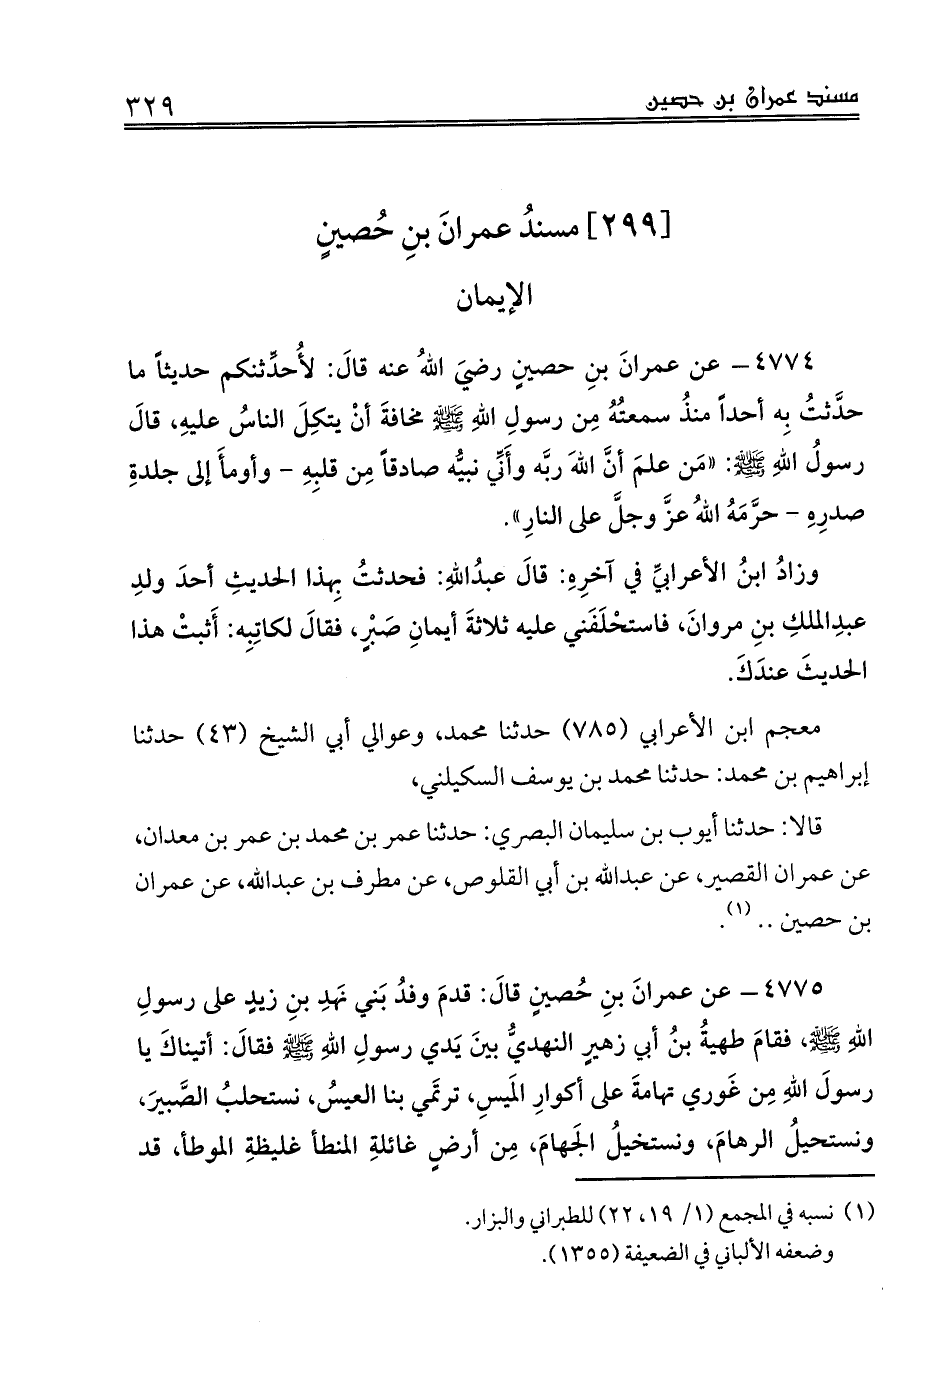 مسند عمران بن حصين ٣٢٩
[٢٩٩] مسندُ عمرانَ بنِ حُصينٍ
الإيمان
٤٧٧٤ - عن عمرانَ بنِ حصينٍ رضيَ اللهُ عنه قالَ: لأُحدِّثنكم حديثاً ما
حدَّثتُ بِه أحداً منذُ سمعتُهُ مِن رسولِ اللهِ ﷺ مخافةَ أنْ يتكِلَ الناسُ عليهِ، قالَ
رسولُ اللهِ ﷺ: «مَن علمَ أنَّ اللهَ ربَّه وأَنِّي نبيُّه صادقاً مِن قلبِهِ - وأومأَ إلى جلدةِ
صدرِهِ - حرَّمَهُ اللهُ عزَّ وجلَّ على النارِ».
وزادُ ابنُ الأعرابيِّ في آخرِهِ: قالَ عبدُاللهِ: فحدثتُ بِهذا الحديثِ أحدَ ولدِ
عبدِالملكِ بنِ مروانَ، فاستحْلَفَني عليه ثلاثةَ أيمانِ صَبْرٍ، فقالَ لكاتِبِه: أَثبتْ هذا
الحديثَ عندَكَ.
معجم ابن الأعرابي (٧٨٥) حدثنا محمد، وعوالي أبي الشيخ (٤٣) حدثنا
إبراهيم بن محمد: حدثنا محمد بن يوسف السكيلني،
قالا: حدثنا أيوب بن سليمان البصري: حدثنا عمر بن محمد بن عمر بن معدان،
عن عمران القصير، عن عبدالله بن أبي القلوص، عن مطرف بن عبدالله، عن عمران
بن حصين .. (١).
٤٧٧٥ - عن عمرانَ بنِ حُصينٍ قالَ: قدمَ وفدُ بَني نَهدِ بنِ زيدٍ على رسولِ
اللهِ ﷺ، فقامَ طهيةُ بنُ أبي زهيرِ النهديُّ بينَ يَدي رسولِ اللهِ ﷺ فقالَ: أتيناكَ يا
رسولَ اللهِ مِن غَوري تهامةَ على أكوارِ المَيسِ، ترتَمي بنا العيسُ، نستحلبُ الصَّبيرَ،
ونستحيلُ الرهامَ، ونستخيلُ الجَهامَ، مِن أرضٍ غائلةِ المنطأ غليظةِ الموطأ، قد
(١) نسبه في المجمع (١/ ١٩، ٢٢) للطبراني والبزار.
وضعفه الألباني في الضعيفة (١٣٥٥).